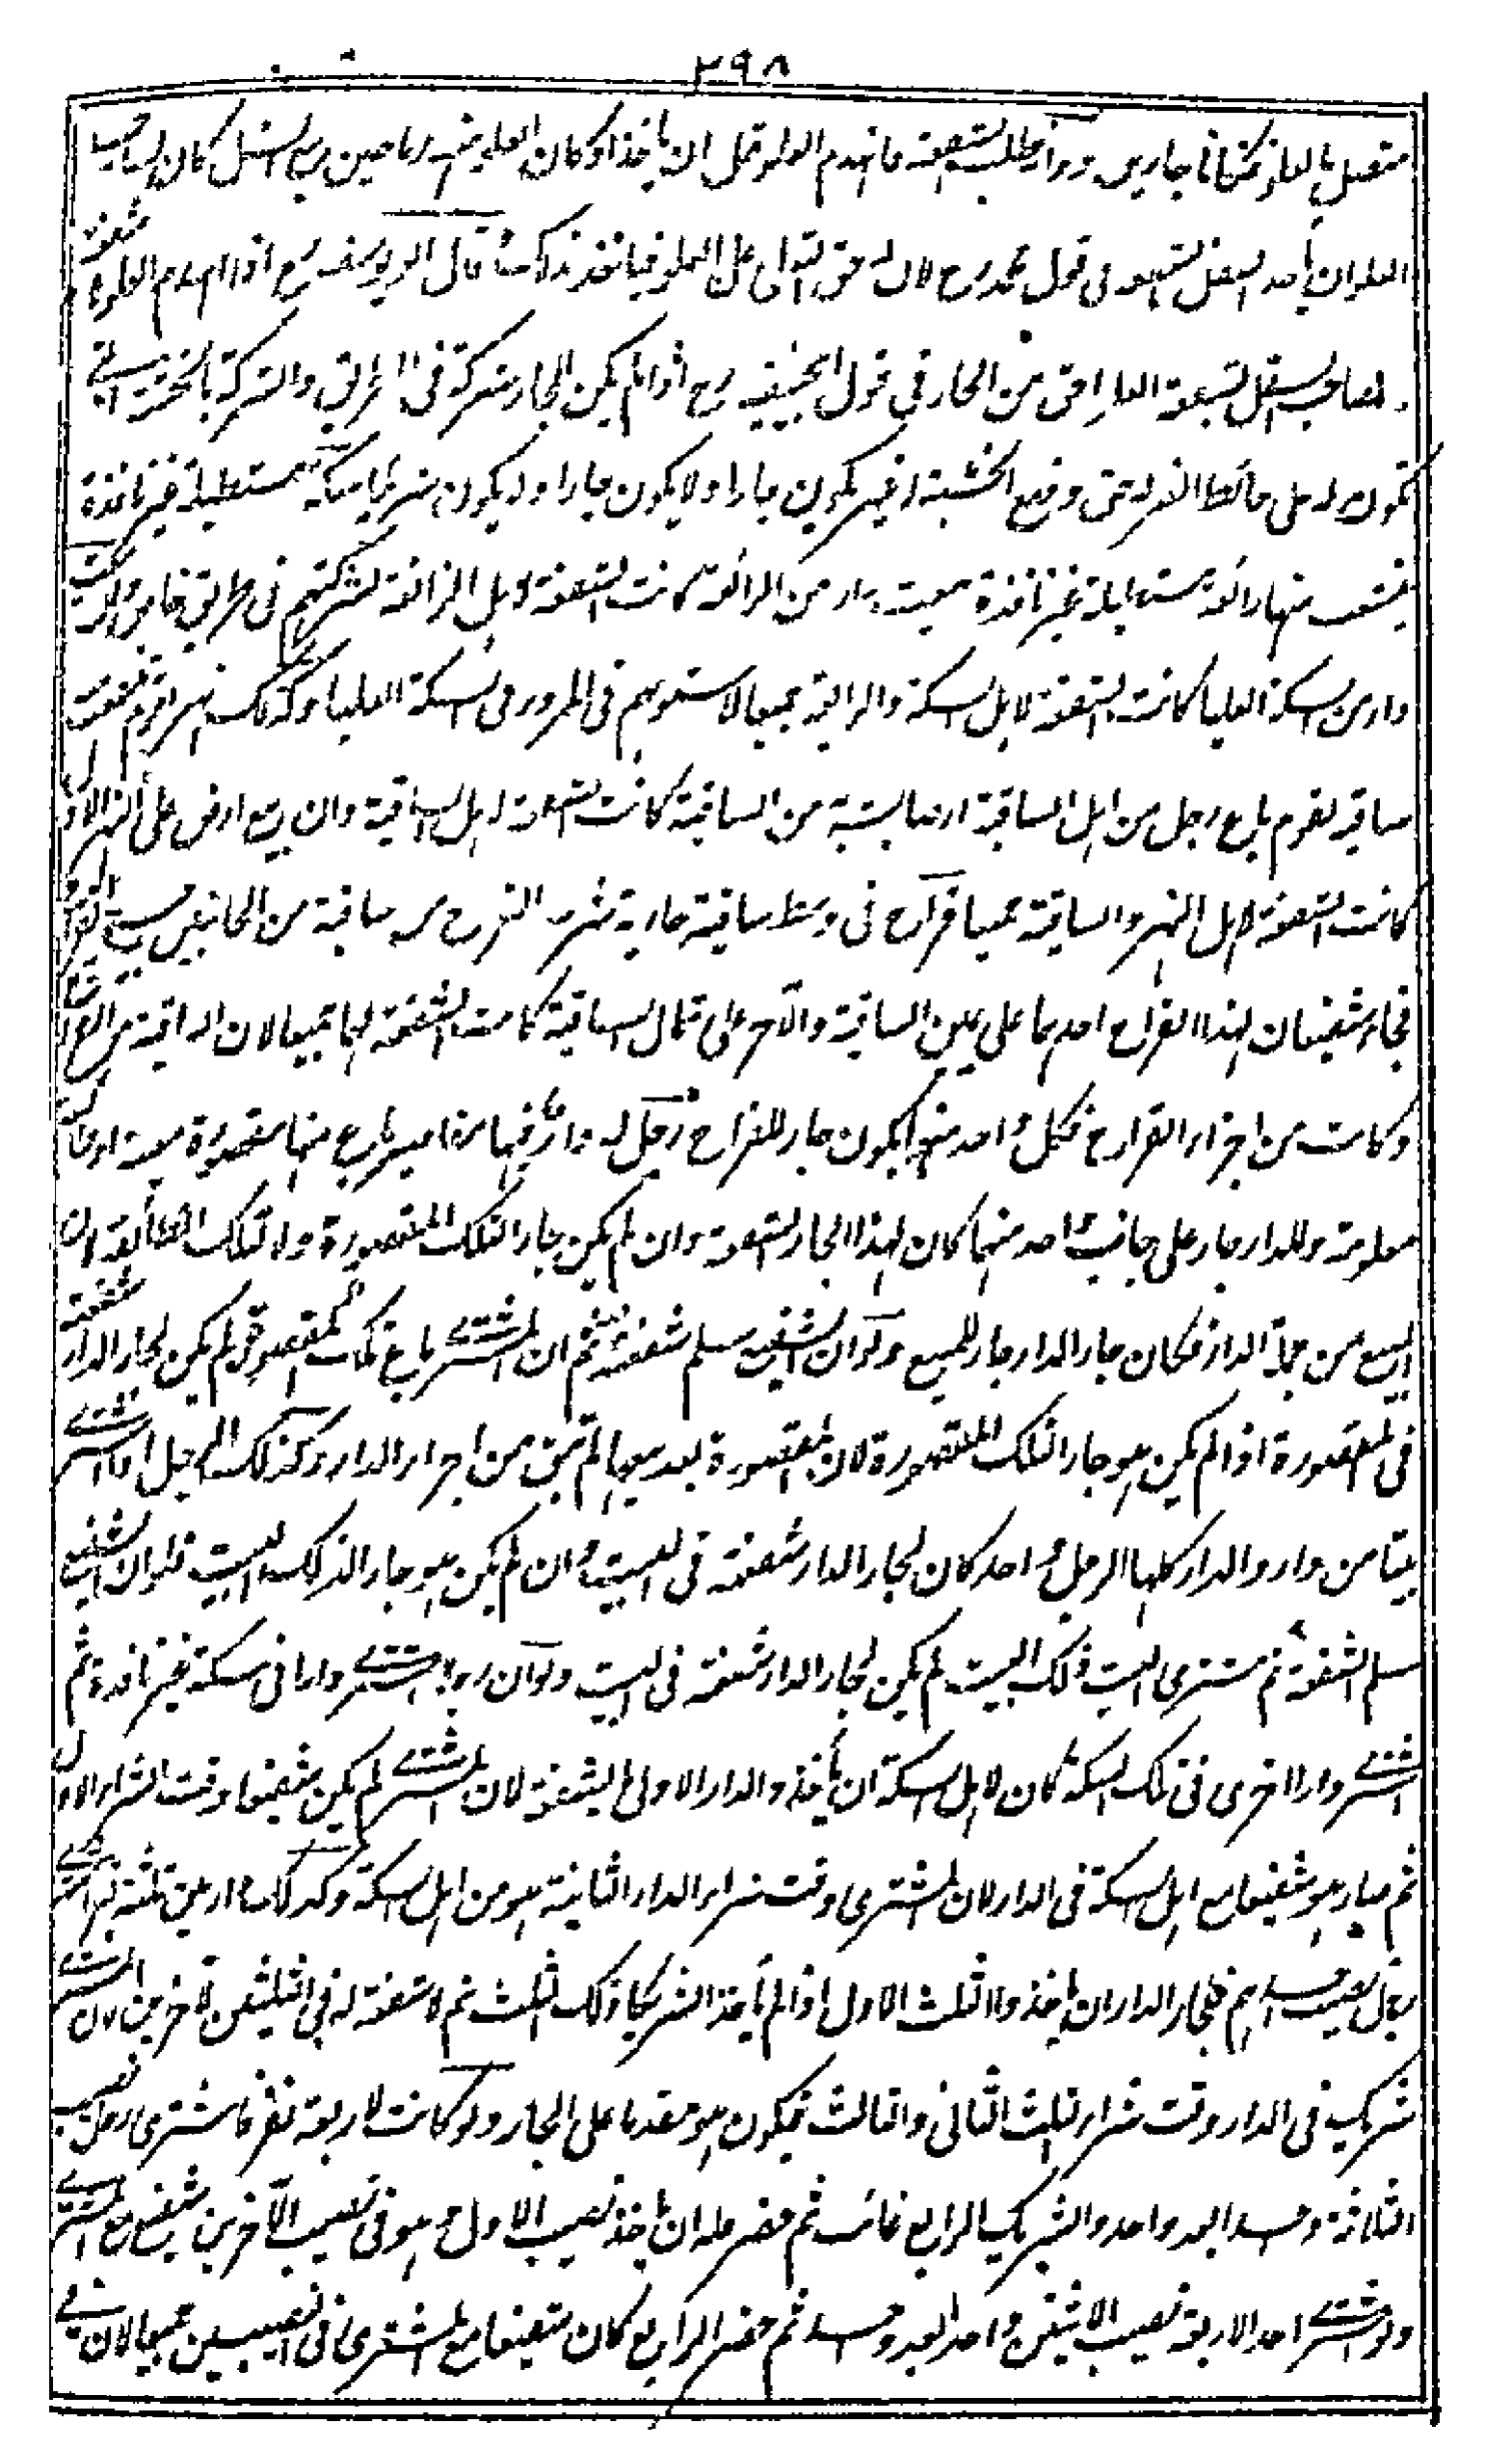 ٢٩٨
متصل بالعلو فكانا جارين ولو طلب الشفعة فانهدم العلو قبل ان ياخذ او كان العلو منهدما حين بيع السفل كان لصاحب
العلو ان ياخذ السفل بالشفعة فى قول محمد رح لان له حق التعلى على السفل فياخذ بذلك قال ابو يوسف رح اذا انهدم العلو فلا شفعة
لصاحب السفل بشفعة العلو احق من الجار فى قول ابيحنيفه رح اذا لم يكن للجار شركة فى الطريق والشركة بالخشبة التى
تكون له على حائط الغير حق وضع الخشبة لا غير يكون جارا ولا يكون شريكا سكة مستطيلة غير نافذة
ينشعب منها زائغة مستطيلة غير نافذة بيعت دار من الزائغة كانت الشفعة لاهل الزائغة لشركتهم فى طريق خاص ولو بيعت
دار من السكة العليا كانت الشفعة لاهل السكة والزائغة جميعا لاستوائهم فى المرور فى السكة العليا وكذلك نهر لقوم ينشعب منه
ساقية لقوم باع رجل من اهل الساقية ارضا بشربه من الساقية كانت الشفعة لاهل الساقية وان بيع ارض على النهر الاول
كانت الشفعة لاهل النهر والساقية جميعا قراح فى وسط ساقية جارية شرب القراح من ساقية من الجانبين بيع القراح
فجاء شفيعان لهذا القراح احدهما على يمين الساقية والآخر على شمال الساقية كانت الشفعة لهما جميعا لان الساقية من القراح
وكانت من اجزاء القراح فكل واحد منهما يكون جار للقراح رجل له دار فيها مقاصير باع منها مقصورة معينة او طائفة
معلومة وللدار جار على جانب واحد منها كان لهذا الجار الشفعة وان لم يكن جار التلك المقصورة ولا لتلك الطائفة لان
المبيع من جملة الدار فكان جار الدار جار للمبيع ولو ان الشفيع سلم شفعته ثم ان المشترى باع تلك المقصورة لم يكن لجار الدار شفعة
فى المقصورة اذا لم يكن هو جار التلك المقصورة لان المقصورة بعد بيعها لم تبق من اجزاء الدار وكذلك الرجل اذا اشترى
بيتا من دار والدار كلها الرجل واحد كان لجار الدار شفعة فى البيت وان لم يكن هو جار الذلك البيت فلو ان الشفيع
سلم الشفعة ثم مشترى البيت ذلك البيت لم يكن لجار الدار شفعة فى البيت ولو ان رجلا اشترى دارا فى سكة غير نافذة ثم
اشترى دارا اخرى فى تلك السكة كان لاهل السكة ان ياخذوا الدار الاولى بالشفعة لان المشترى لم يكن شفيعا وقت الشراء الاول
ثم صار هو شفيعا مع اهل السكة فى الدار لان المشترى وقت شراء الدار الثانية هو من اهل السكة وكذلك دار بين ثلثة نفر اشترى
رجل نصيب احدهم فلجار الدار ان ياخذ الثلث الاول اذا لم ياخذ الشريكا ذلك الثلث ثم لا شفعة له فى الثلثين الآخرين لان المشترى
شريك فى الدار وقت شراء الثلث الثانى والثالث فيكون هو مقدما على الجار ولو كانت لاربعة نفر فاشترى رجل نصيب
الثلاثة واحدا بعد واحد والشريك الرابع غائب ثم حضر فله ان ياخذ نصيب الاول وهو فى نصيب الآخرين شفيع مع المشترى
ولو اشترى احد الاربعة نصيب الاثنين واحد ابعد واحد ثم حضر الرابع كان شفيعا مع المشترى فى النصيبين جميعا لان